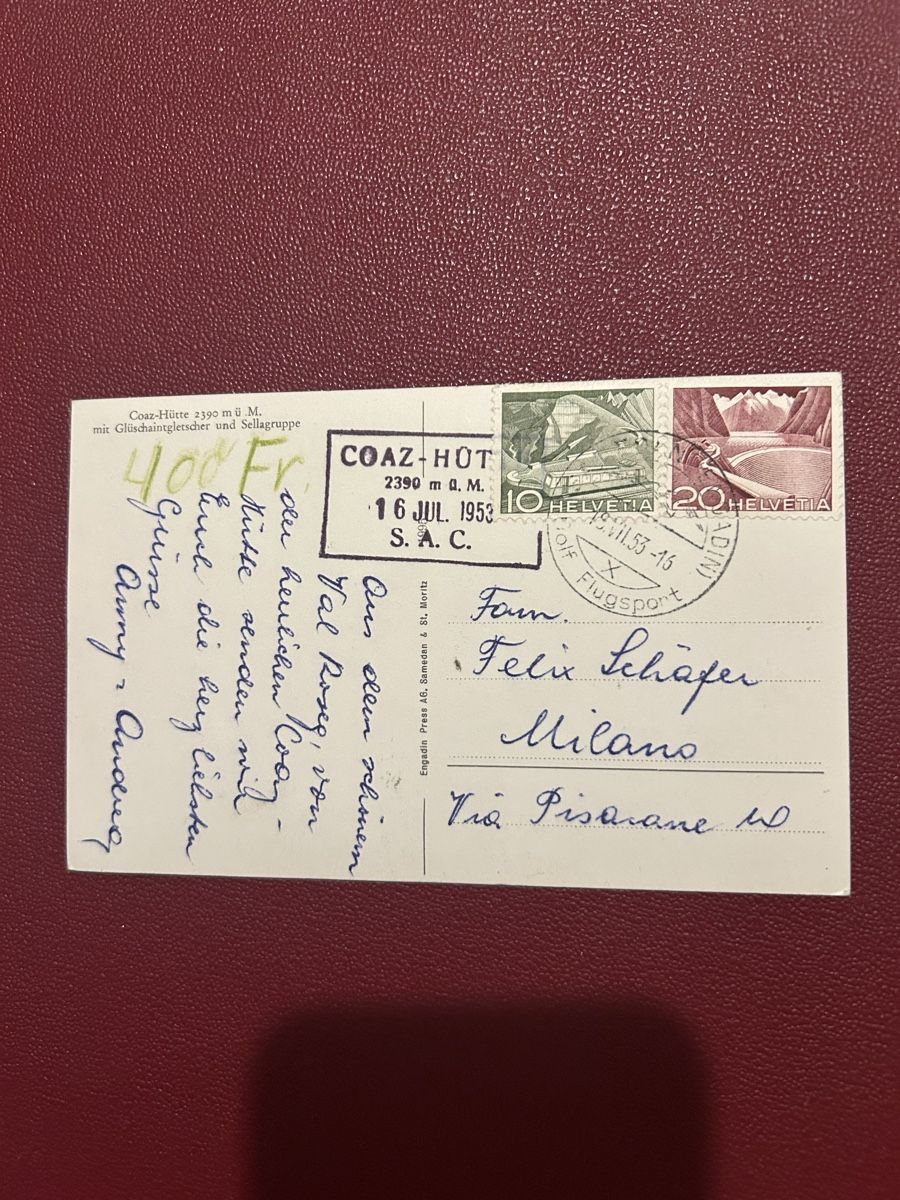 Coaz-Hütte 2390 m ü. M.
mit Glüschaintgletscher und Sellagruppe
400 Fr.
COAZ-HÜT
2390 m ü. M.
16 JUL. 1953
S. A. C.
10 HELVETIA
20 HELVETIA
ADIN)
VII.53-16
X
olf Flugsport
Aus dem schönen
Val Roseg, von
der herrlichen Coaz-
Hütte senden wir
Euch die herzlichsten
Grüsse
Engadin Press AG. Samedan & St. Moritz
Fam.
Felix Schäfer
Milano
Via Pisacane